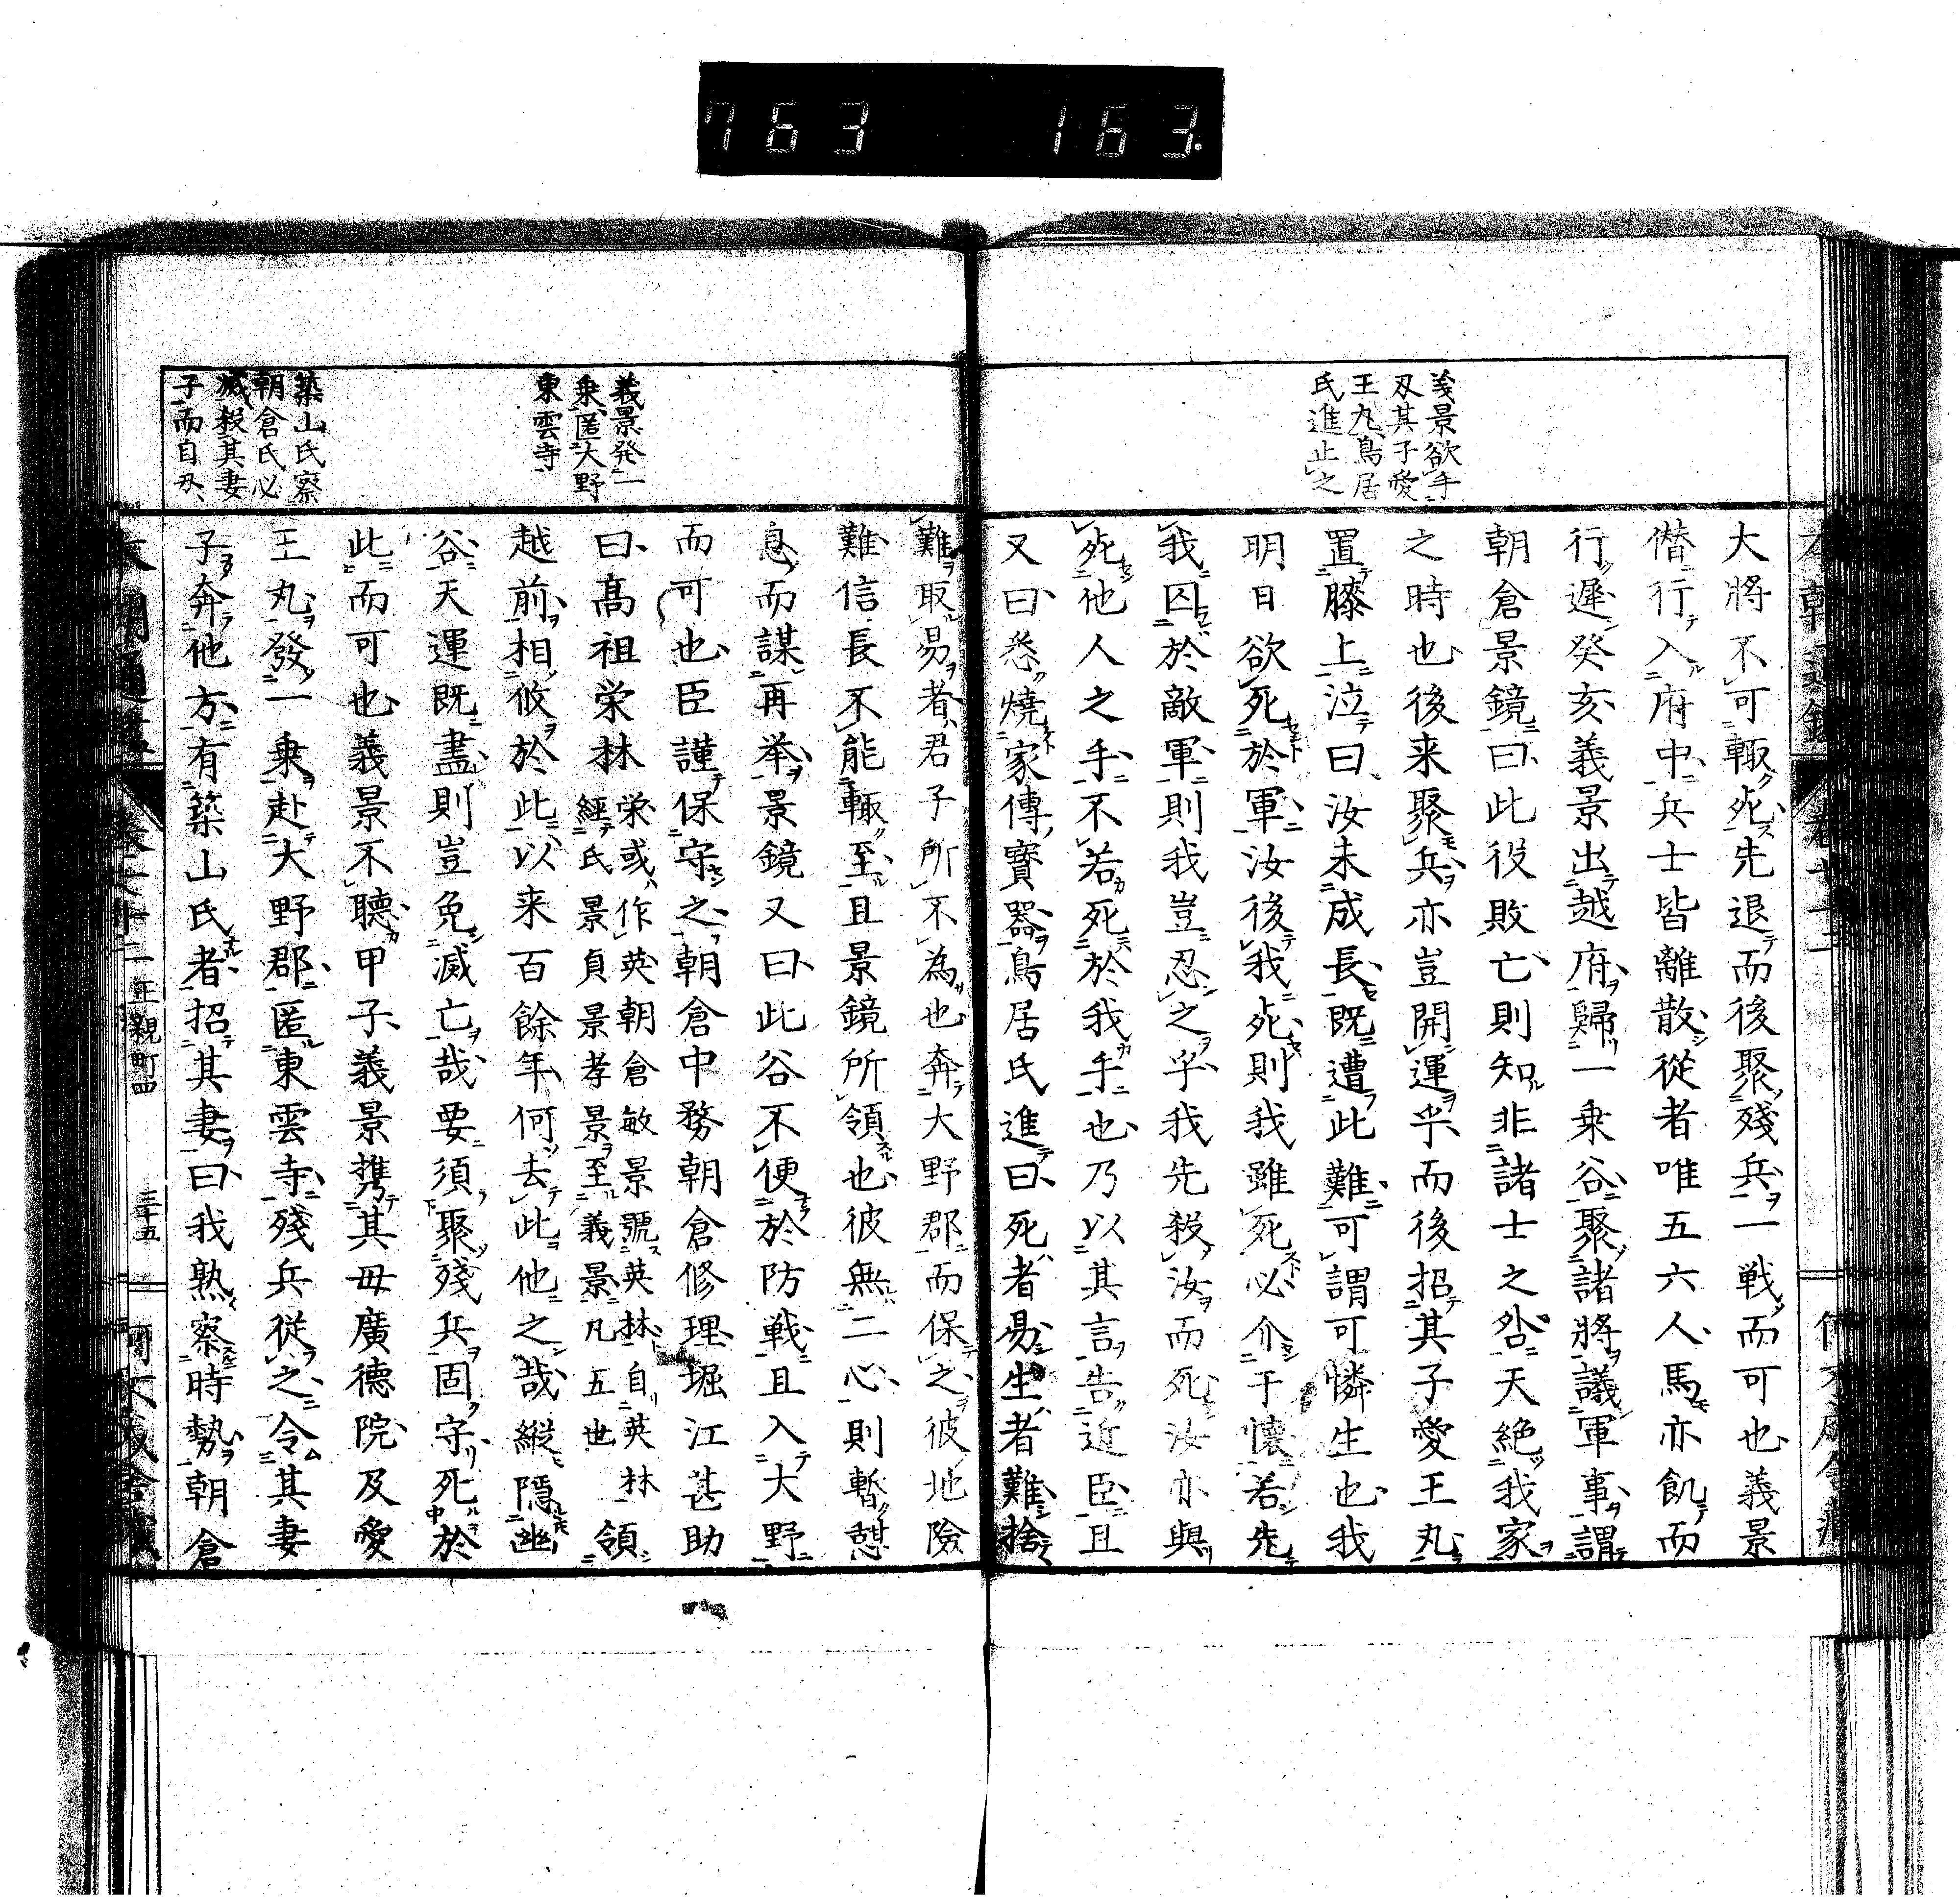 763 163.
義景欲手
刄其子愛
王丸鳥居
氏進止之
大將不可輙死先退而後聚殘兵一戦而可也義景
僭行入府中兵士皆離散從者唯五六人馬亦飢而
行遲癸亥義景出越府歸一乗谷聚諸將議軍事謂
朝倉景鏡曰此役敗亡則知非諸士之咎天絶我家
之時也後来聚兵亦豈開運乎而後招其子愛王丸
置膝上泣曰汝未成長既遭此難可謂可憐生也我
明日欲死於軍汝後我死則我雖死必介于懷若先
我囚於敵軍則我豈忍之乎我先殺汝而死汝亦與
死他人之手不若死於我手也乃以其言告近臣且
又曰悉燒家傳寳器鳥居氏進曰死者易生者難捨
義景発一
乗匿大野
東雲寺
築山氏察
朝倉氏必
滅殺其妻
子而自刄
難取易者君子所不為也奔大野郡而保之彼地險
難信長不能輙至且景鏡所領也彼無二心則暫憇
息而謀再举景鏡又曰此谷不便於防戦且入大野
而可也臣謹保守之朝倉中務朝倉修理堀江甚助
曰髙祖栄林栄或作英朝倉敏景號英林自英林經氏景貞景孝景至義景凡五世領
越前相攸於此以来百餘年何去此他之哉縱隠幽
谷天運既盡則豈免滅亡哉要須聚殘兵固守死於
此而可也義景不聽甲子義景携其母廣德院及愛
王丸發一乗赴大野郡匿東雲寺殘兵従之令其妻
子奔他方有築山氏者招其妻曰我熟察時勢朝倉
正親町四
三十五